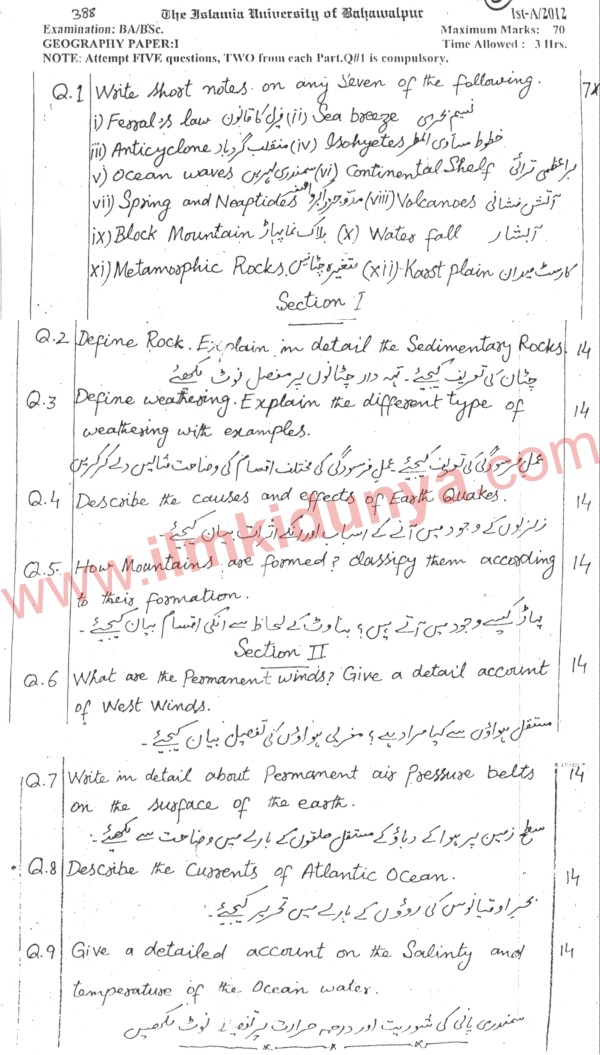 388 The Islamia University of Bahawalpur 1st-A/2012
Examination: BA/BSc. Maximum Marks: 70
GEOGRAPHY PAPER:I Time Allowed : 3 Hrs.
NOTE: Attempt FIVE questions, TWO from each Part.Q#1 is compulsory.
Q.1 Write short notes on any Seven of the following. 7x
i) Ferral's law فیرل کا قانون (ii) Sea breeze نسیم بحری
iii) Anticyclone منقلب گردباد (iv) Isohyetes خطوط مساوی المطر
v) Ocean waves سمندری لہریں (vi) Continental Shelf براعظمی ترائی
vii) Spring and Neaptides مدوجزر (viii) Volcanoes آتش فشانی
ix) Block Mountain بلاک نما پہاڑ (x) Water fall آبشار
xi) Metamorphic Rocks متغیرہ چٹانیں (xii) Karst plain کارسٹ میدان
Section I
Q.2 Define Rock. Explain in detail the Sedimentary Rocks. 14
چٹان کی تعریف کیجئے۔ تہہ دار چٹانوں پر مفصل نوٹ لکھئے
Q.3 Define weathering. Explain the different type of 14
weathering with examples.
عمل فرسودگی کی تعریف کیجئے عمل فرسودگی کی مختلف اقسام کی وضاحت مثالیں دے کر کریں
Q.4 Describe the causes and effects of Earth Quakes. 14
زلزلوں کے وجود میں آنے کے اسباب اور انکے اثرات بیان کیجئے۔
Q.5. How Mountains are formed? classify them according 14
to their formation.
پہاڑ کیسے وجود میں آتے ہیں؟ بناوٹ کے لحاظ سے انکی اقسام بیان کیجئے۔
Section II
Q.6 What are the Permanent winds? Give a detail account 14
of West Winds.
مستقل ہواؤں سے کیا مراد ہے؟ مغربی ہواؤں کی تفصیل بیان کیجئے۔
Q.7 Write in detail about Permanent air Pressure belts 14
on the surface of the earth.
سطح زمین پر ہوا کے دباؤ کے مستقل حلقوں کے بارے میں وضاحت سے لکھیئے۔
Q.8 Describe the Currents of Atlantic Ocean. 14
بحر اوقیانوس کی روؤں کے بارے میں تحریر کیجئے۔
Q.9 Give a detailed account on the Salinty and 14
temperature of the Ocean water.
سمندری پانی کی شوریت اور درجہ حرارت پر نوٹ لکھیں
www.ilmkidunya.com